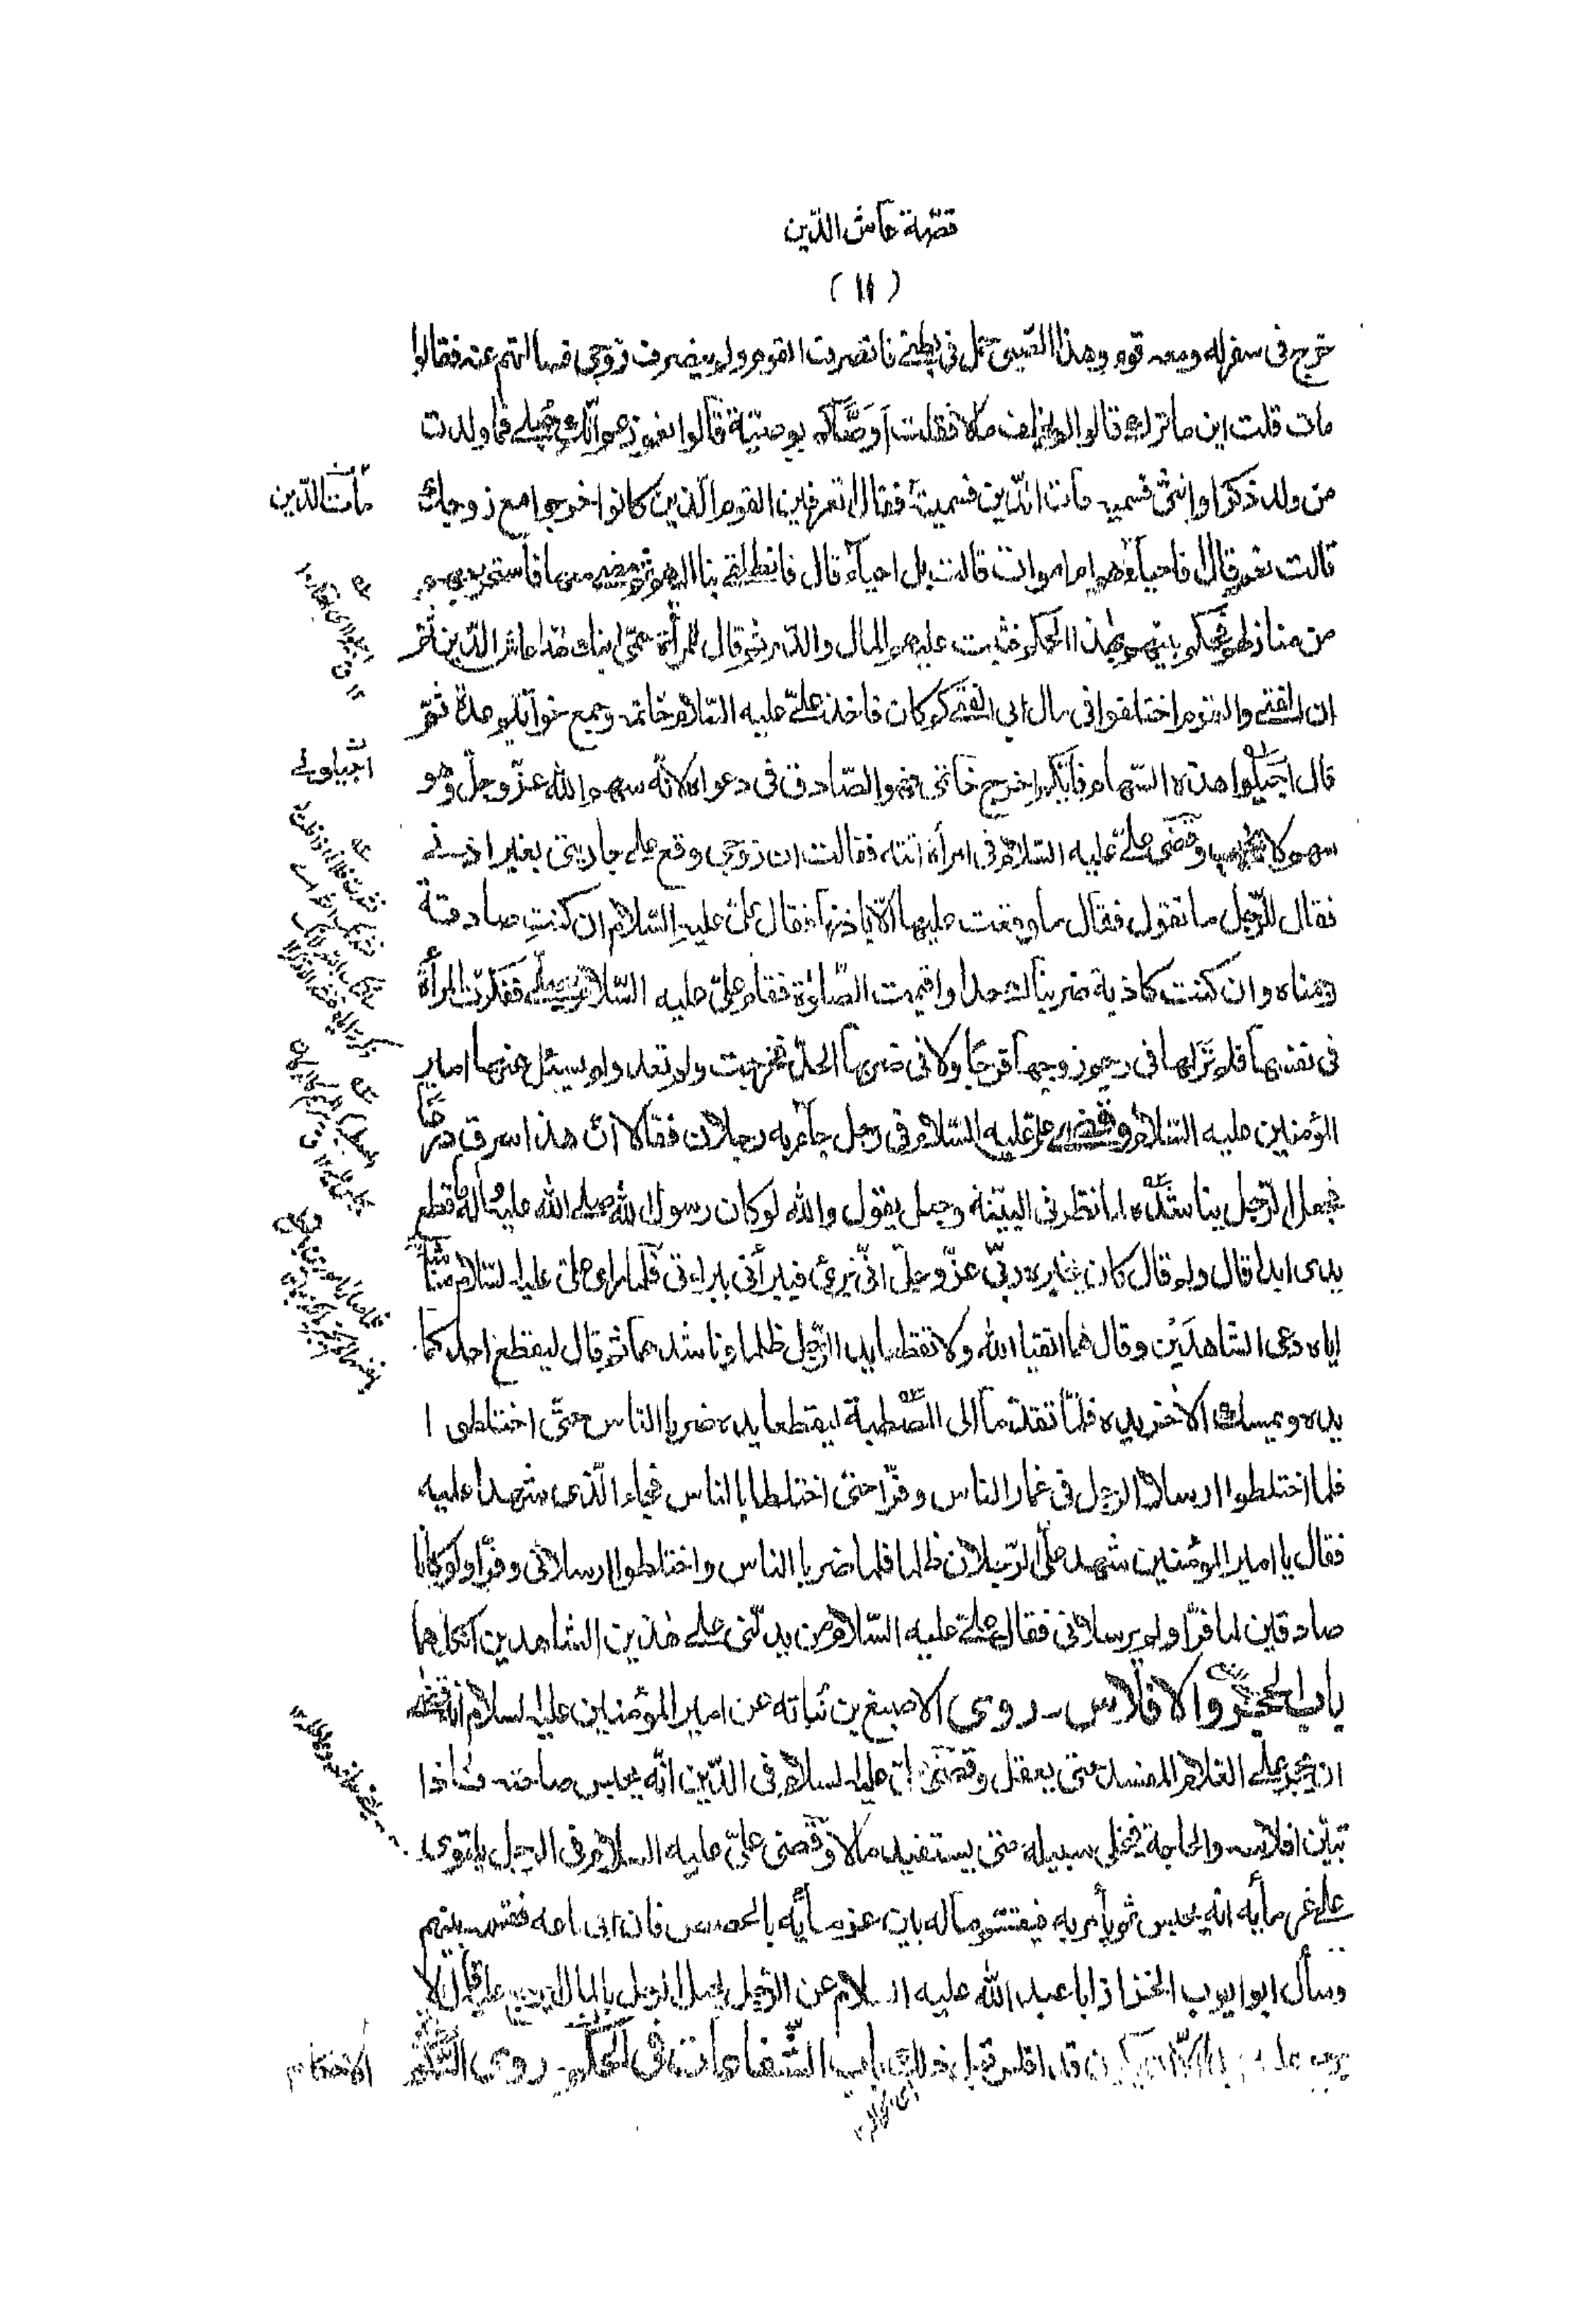 قصّة عاش الدّين
(١١)
خرج فى سفر له ومعه قوم وهذا الصّبى حمل فى بطنى فانصرف القوم ولم ينصرف زوجى فسألتهم عنه فقالوا
مات قلت اين ما ترك قالوا لم يخلف مالا فقلت أوصّاكم بوصيّة قالوا نعم زعم انّك حبلى فما ولدت
من ولد ذكرا او انثى فسميه مات الدّين فسميته فقال اتعرفين القوم الّذين كانوا خرجوا مع زوجك
مات الدّين
قالت نعم قال فاحياء هم ام اموات قالت بل احياء قال فانطلقى بنا اليهم ثم مضى معها فاستخرجهم
من منازلهم فحكم بينهم بهذا الحكم فثبت عليهم المال والدم ثم قال للمرأة سمّى ابنك هذا عاش الدّين ثم
ان الفتى والقوم اختلفوا فى مال ابى الفتى كم كان فاخذ علىّ عليه السّلام خاتمه وجمع خواتيم عدة ثمّ
قال اجيلوا هذه السّهام فايّكم اخرج خاتمى فهو الصّادق فى دعواه لانّه سهم الله عزّ وجلّ وهو
اجيلوا
سهم لا يخيب وقضى علىّ عليه السّلام فى امرأة اتته فقالت ان زوجى وقع على جاريتى بغير اذنى
فقال للرّجل ما تقول فقال ما وقعت عليها الّا باذنها فقال علىّ عليه السّلام ان كنت صادقة
رجمناه وان كنت كاذبة ضربناك حدا واقيمت الصّلوٰة فقام علىّ عليه السّلام يصلّى ففكرت المرأة
فى نفسها فلم تر لها فى رجم زوجها فرجا ولا فى ضربها الحدّ فخرجت ولم تعد ولم يسئل عنها امير
المؤمنين عليه السّلام وقضى علىّ عليه السّلام فى رجل جاء به رجلان فقالا انّ هذا سرق درعا
فجعل الرّجل يناشده لما نظر فى البيّنة وجعل يقول والله لو كان رسول الله صلى الله عليه وآله ما قطع
يدى ابدا قال ولم قال كان يخبره ربّى عزّ وجلّ انّى برئ فيبرأنى ببراءتى فلما راى علىّ عليه السّلام مناشدته
اياه دعى الشاهدين وقال لهما اتقيا الله ولا تقطعا يد الرّجل ظلما وناشدهما ثم قال ليقطع احدكما
يده ويمسك الآخر يده فلمّا تقدّما الى المصطبة ليقطعا يده ضربا الناس حتّى اختلطوا
فلما اختلطوا ارسلا الرجل فى غمار الناس وفرّا حتى اختلطا بالناس فجاء الّذى شهدا عليه
فقال يا امير المؤمنين شهد علىّ الرّجلان ظلما فلما ضربا الناس واختلطوا ارسلانى وفرّا ولو كانا
صادقين لما فرّا ولم يرسلانى فقال علىّ عليه السّلام من يدلّنى على هٰذين الشاهدين انكلهما
باب الحجر والافلاس ـ روى الاصبغ بن نباته عن امير المؤمنين عليه السلام انه قضى
ان يحجر على الغلام المفسد حتى يعقل وقضى عليه السلام فى الدّين انّه يحبس صاحبه فاذا
تبيّن افلاسه والحاجة فيخلى سبيله حتى يستفيد مالا وقضى علىّ عليه السلام فى الرجل يلتوى
على غرمائه انه يحبس ثم يأمر به فيقسم ماله بين غرمائه بالحصص فان ابى باعه فقسمه بينهم
وسأل ابو ايوب الخزاز ابا عبد الله عليه السلام عن الرّجل يحيل الرجل بالمال ايرجع عليه قال لا
يرجع عليه ابدا الّا ان يكون قد افلس قبل ذلك باب الشّفاعات فى الاحكام ـ روى السّكونى
الاحكام